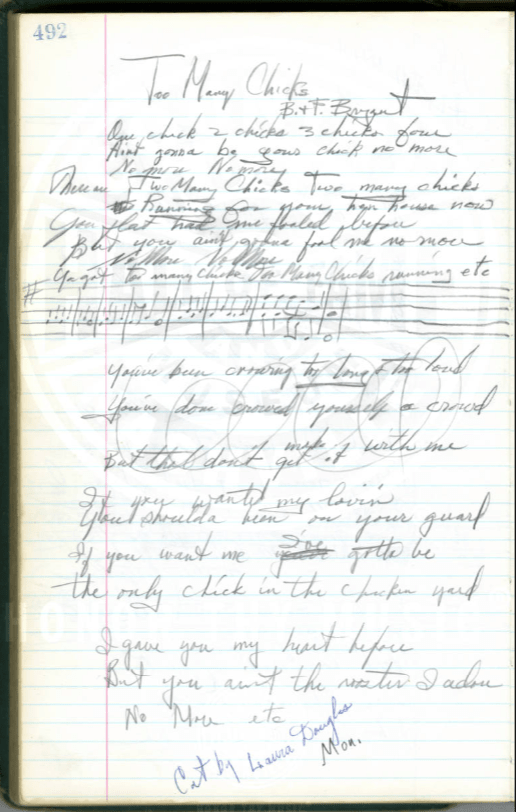 492
Too Many Chicks
B. & F. Bryant
One chick 2 chicks 3 chicks four
Aint gonna be your chick no more
No more No more
There are Two Many Chicks Two many chicks
Running for your hen house now
You flat had me fooled before
But you ain't gonna fool me no more
No More No More
Ya got too many chicks Too Many Chicks running etc
You've been crowing too long & too loud
You've done crowed yourself a crowd
But that don't get it with me
If you wanted my lovin
You shoulda been on your guard
If you want me I've gotta be
the only chick in the chicken yard
I gave you my heart before
But you ain't the rooster I adore
No More etc
Cut by Leona Douglas
Mon.